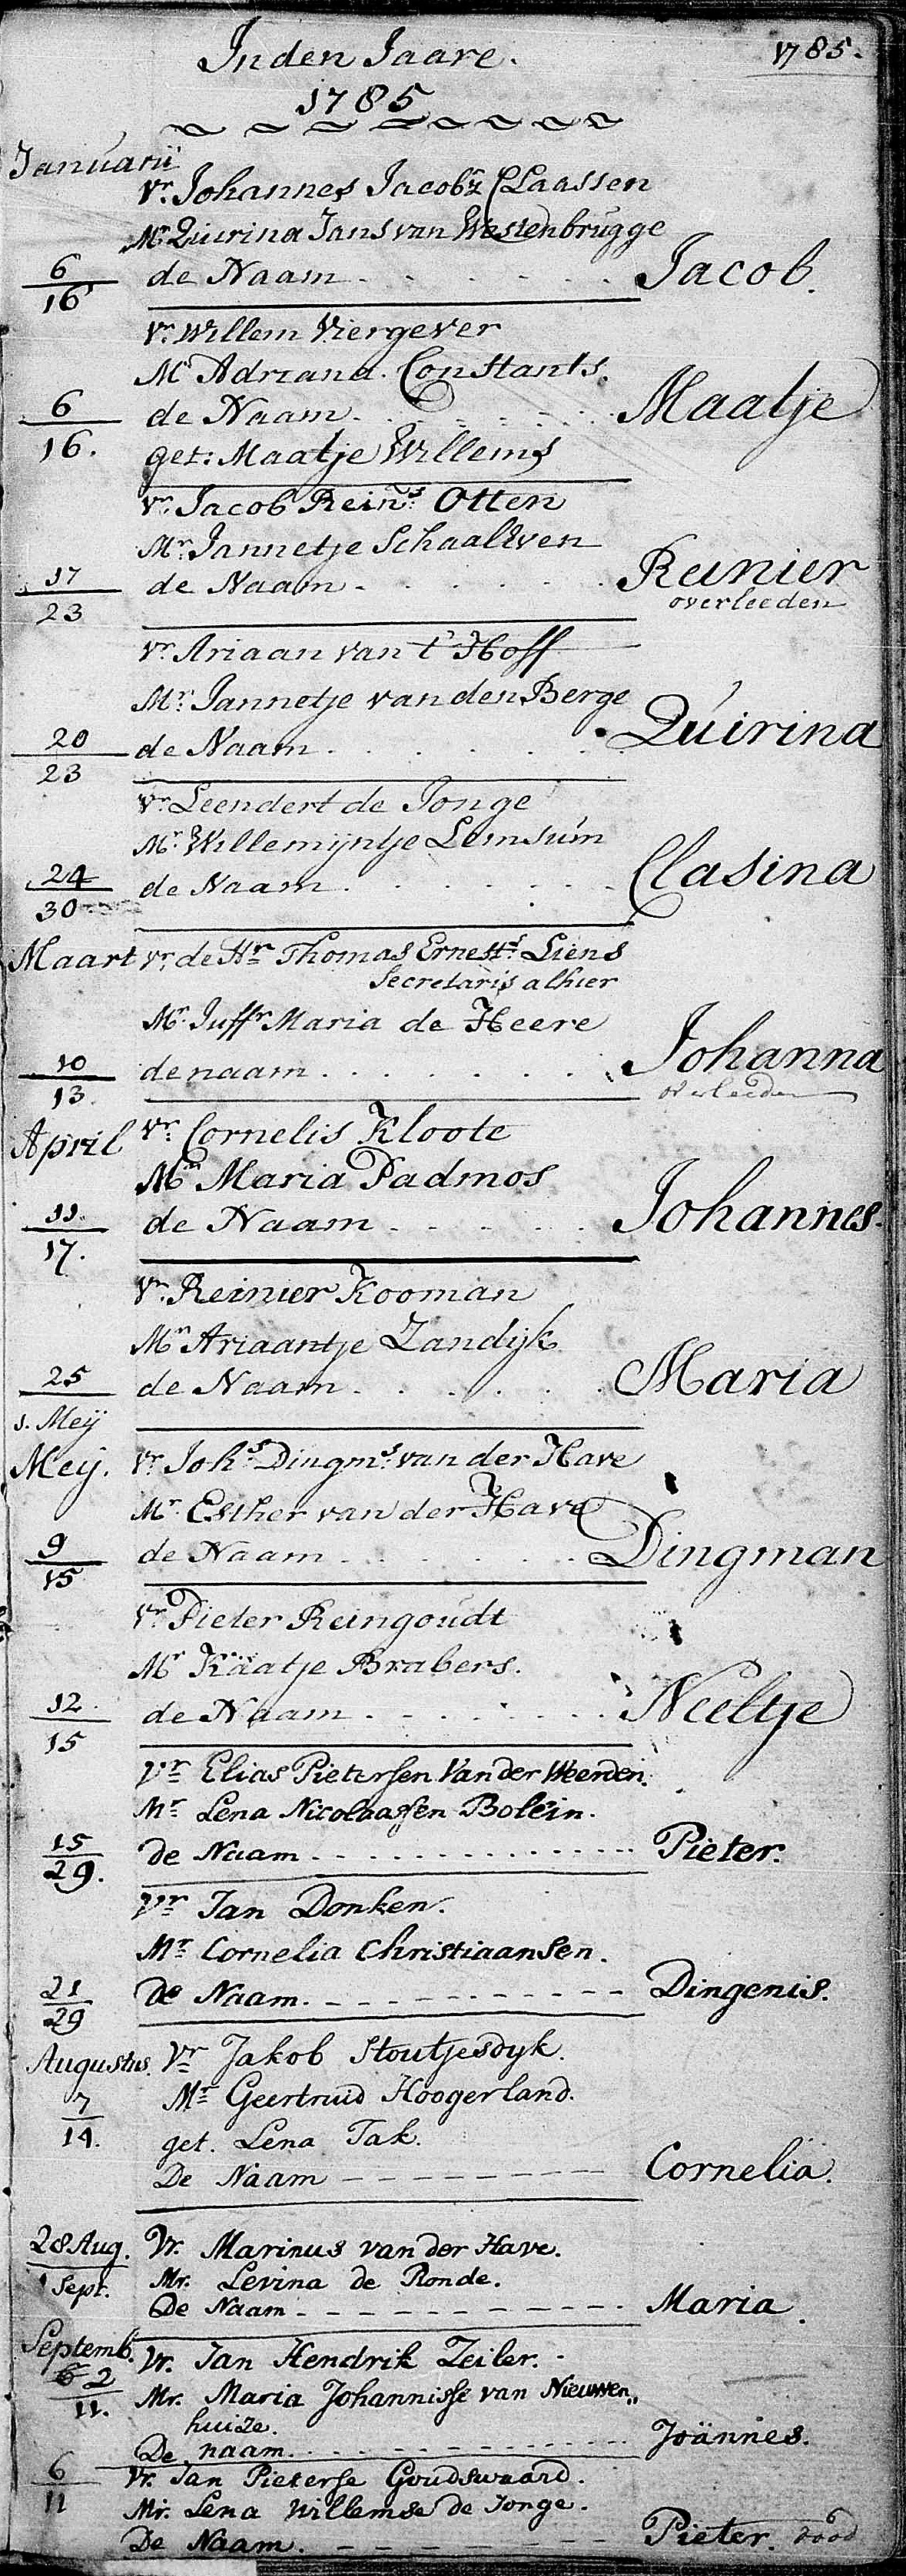 In den Jaare. 1785.
1785
Januarij
Vr. Johannes Jacobz Claassen
Mr Quirina Jans van Westenbrugge
6/16 de Naam . . . . . . Jacob.
Vr. Willem Viergever
Mr Adriana. Constants.
6/16. de Naam . . . . . . Maatje
get: Maatje Willems
Vr. Jacob Reins. Otten
Mr. Jannetje Schaalwen
17/23 de Naam . . . . . . Reinier
overleeden
Vr. Ariaan van t' Hoff
Mr. Jannetje van den Berge
20/23 de Naam . . . . . . Quirina
Vr. Leendert de Jonge
Mr. Willemijntje Lemsum
24/30 de Naam . . . . . . Clasina
Maart Vr. de Hr. Thomas Ernests. Liens
Secretaris alhier
Mr. Juffr Maria de Heere
10/13. de naam . . . . . . Johanna
overleeden
April Vr. Cornelis Kloote
Mr Maria Padmos
11./17. de Naam . . . . . . Johannes.
Vr. Reinier Kooman
Mr Ariaantje Zandijk
25/1. Meij de Naam . . . . . . Maria
Meij. Vr. Johs. Dingms. van der Have
Mr. Esther van der Have
9/15 de Naam . . . . . . Dingman
Vr Pieter Reingoudt
Mr Kaatje Brabers.
12./15 de Naam . . . . . . Neeltje
Vr Elias Pietersen Van der Weerden.
Mr Lena Nicolaassen Bolein.
15/29. de Naam . . . . . . Pieter.
Vr Jan Donken.
Mr Cornelia Christiaansen.
21/29 De Naam. . . . . . . Dingenis.
Augustus. Vr Jakob Stoutjesdyk.
7/14. Mr Geertruid Hoogerland.
get. Lena Tak.
De Naam - - - - - - Cornelia.
28 Aug. Vr. Marinus van der Have.
1 Sept. Mr. Levina de Ronde.
De Naam - - - - - - Maria.
Septemb. Vr. Jan Hendrik Zeiler.
2/11. Mr. Maria Johannisse van Nieuwen„
huize.
De naam. . . . . . . Joännes.
6/11 Vr. Jan Pieterse Goudswaard.
Mr. Lena Willemse de Jonge.
De Naam. - - - - - - Pieter. dood